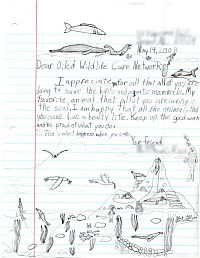 May 19, 2008
Dear Oiled Wildlife Care Network,
I appreciate for all that all of you are
doing to save the birds and aquatic mammals. My
favorite animal that all of you are saving is
the seal. I am happy that all the animals that
you save live a healthy life. Keep up the good work
and be proud of what you do.
This is what happens when you care